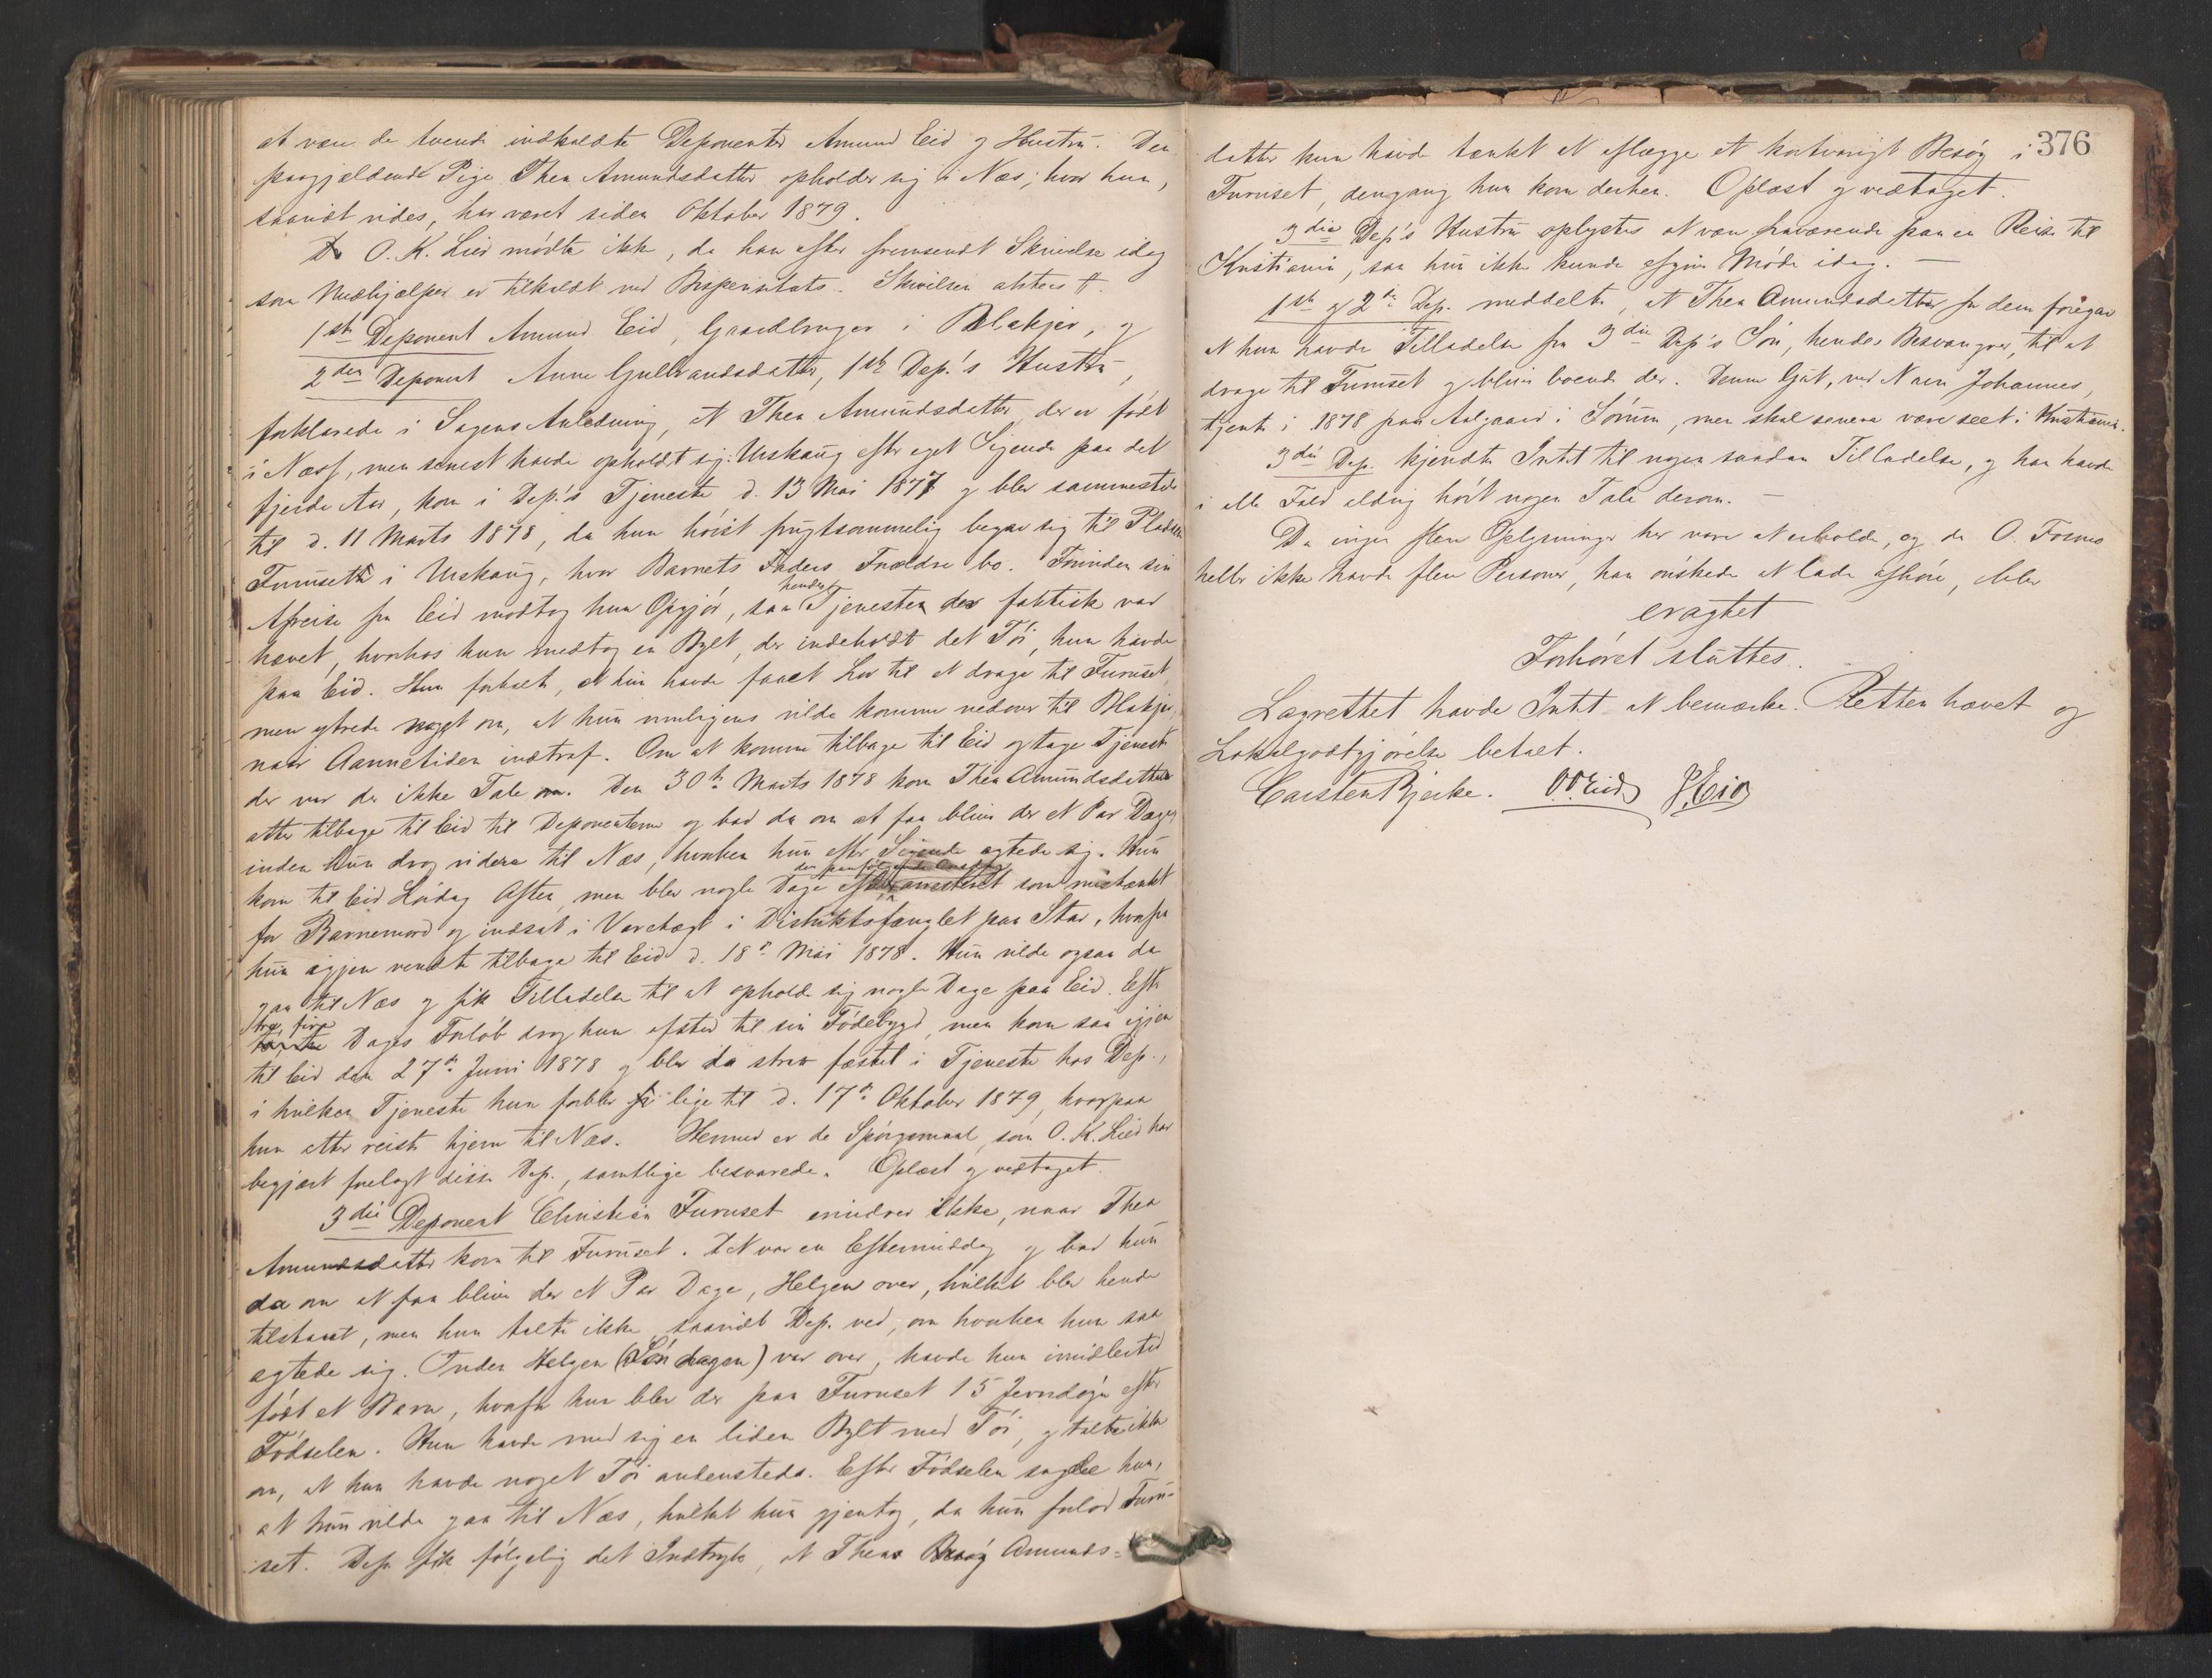 at være de tvende indkaldte Deponenter Amund Eid og Hustru. Den
paagjældende Pige Thea Amundsdatter opholder sig i Næs, hvor hun,
saavidt vides, har været siden Oktober 1879.
O. K. Lied mødte ikke, da han efter fremsendt Skrivelse idag
som Medhjælper er tilkaldt ved Skrivelsen
1ste Deponent Amund Eid, Gaardbruger i Blakjer, og
2den Deponent Anne Gulbrandsdatter, 1ste Dep.'s Hustru,
forklarede i Sagens Anledning, at Thea Amundsdatter, der er født
i Næss, men senest havde opholdt sig i Urskaug efter eget Sigende paa det
fjerde Aar, kom i Dep.'s Tjeneste d. 13 Mai 1877 og blev sammesteds
til d. 11 Marts 1878, da hun høist frugtsommelig begav sig til Pladsen
Furuset i Urskaug, hvor Barnets Faders Forældre bo. Forinden sin
Afreise fra Eid modtog hun Opgjør, saa hendes Tjeneste der faktisk var
hævet, hvorhos hun medtog en Bylt, der indeholdt det Tøi, hun havde
paa Eid. Hun fortalte, at hun havde faaet Lov til at drage til Furuset,
men ytrede noget om, at hun muligens vilde komme nedover til Blakjer,
naar Aannetiden indtraf. Om at komme tilbage til Eid og tage Tjeneste
der var der ikke Tale om. Den 30te Marts 1878 kom Thea Amundsdatter
atter tilbage til Eid til Deponenterne og bad da om at faa blive der et Par Dage,
inden hun drog videre til Næs, hvorhen hun efter Sigende agtede sig. Hun
kom til Eid Lørdag Aften, men blev den paafølgende Onsdag arresteret som mistænkt
for Barnemord og indsat i Varetægt i Distriktsfængslet paa , hvorfra
hun igjen vendte tilbage til Eid d. 18de Mai 1878. Hun vilde ogsaa da
gaa til Næs og fik Tilladelse til at opholde sig nogle Dage paa Eid. Efter
tre, fire Dages Forløb drog hun afsted til sin Fødebygd, men kom saa igjen
til Eid den 27de Juni 1878 og blev da strax fæstet i Tjeneste hos Dep.,
i hvilken Tjeneste hun forblev lige til d. 17de Oktober 1879, hvorpaa
hun atter reiste hjem til Næs. Hermed er de Spørgsmaal, som O. K. Lied har
begjært forelagt disse Dep., samtlige besvarede. Oplæst og vedtaget.
3die Deponent Christian Furuset erindrer ikke, naar Thea
Amundsdatter kom til Furuset. Det var en Eftermiddag og bad hun
da om at faa blive der et Par Dage, Helgen over, hvilket blev hende
tilstaaet, men hun talte ikke, saavidt Dep. ved, om hvorhen hun saa
agtede sig. Inden Helgen (Søndagen) var over, havde hun imidlertid
født et Barn, hvorfor hun blev der paa Furuset 15 Jevndøgn efter
Fødselen. Hun havde med sig en liden Bylt med Tøi, og talte ikke
om, at hun havde noget Tøi andensteds. Efter Fødselen sagde hun,
at hun vilde gaa til Næs, hvilket hun gjentog, da hun forlod Furu-
set. Dep. fik følgelig det Indtryk, at Thea Amunds-
376
datter kun havde tænkt at aflægge et kortvarigt Besøg i
Furuset, dengang hun kom derhen. Oplæst og vedtaget.
3die Dep's Hustru oplystes at være fraværende paa en Reise til
Kristiania, saa hun ikke kunde afgive Møde idag. —
1ste og 2den Dep. meddelte, at Thea Amundsdatter for dem foregav
at hun havde Tilladelse fra 3die Dep's Søn, hendes Besvangrer, til at
drage til Furuset og blive boende der. Denne Gut, ved Navn Johannes,
tjente i 1878 paa Aalgaard i Sørum, men skal senere være seet i Kristiania.
3die Dep. kjendte Intet til nogen saadan Tilladelse, og han havde
i alle Fald aldrig hørt nogen Tale derom. —
Da ingen flere Oplysninger her vare at erholde, og da O. Fosmo
heller ikke havde flere Personer, han ønskede at lade afhøre, blev
eragtet
Forhøret sluttes.
Lagrettet havde Intet at bemærke. Retten hævet og
Lokalgodtgjørelse betalt.
Carsten Bjerke. O O Eid P. Eid